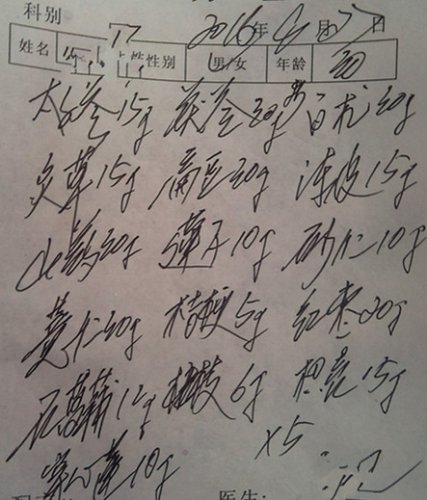 科别
2016年 月27日
姓名 性别 男/女 年龄
太子参15g 茯苓30g 白术30g
炙草15g 扁豆30g 陈皮15g
山药30g 莲子10g 砂仁10g
薏仁30g 桔梗5g 红枣30g
石菖蒲12g 桂枝6g 枳壳15g
10g ×5
医生: